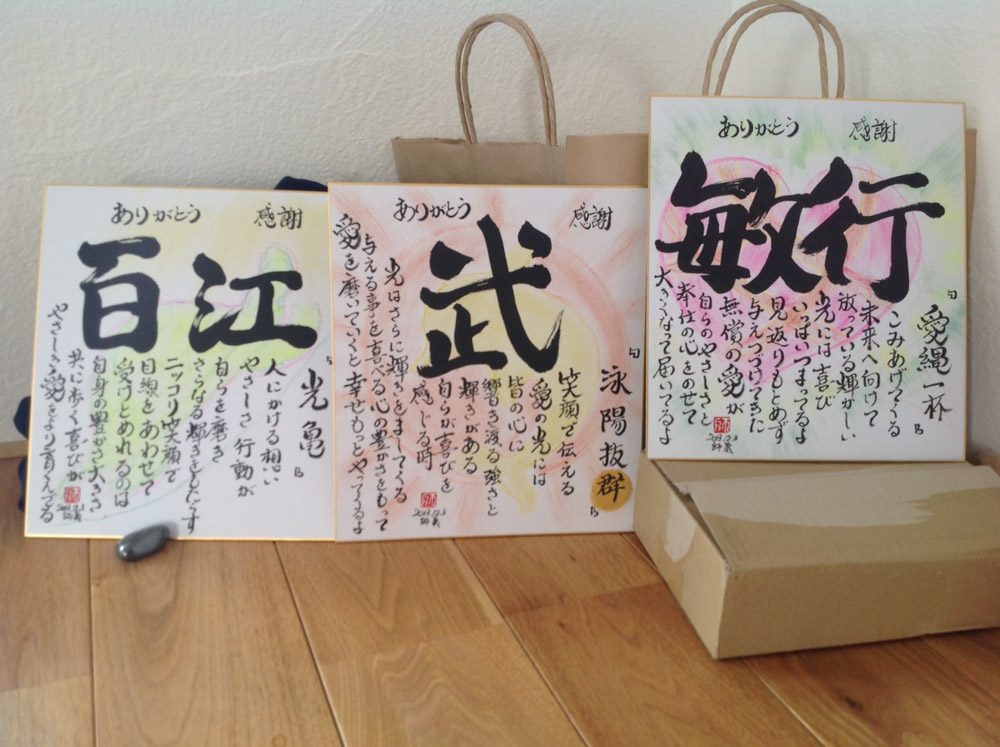 ありがとう
感謝
百江
光亀
人にかける想い
やさしさ 行動が
自らを磨き
さらなる輝きをもたらす
ニッコリ笑顔で
目線をあわせて
受けとめれるのは
自身の豊かさ大きさ
共に歩く喜びが
やさしき愛をより育くんでる
ありがとう
感謝
武
泳陽抜群
笑顔で伝える
愛の光には
皆の心に
響き渡る強さと
輝きがある
自らが喜びを
感じる時
光はさらに輝きをましてくる
与える事を喜べる心の豊かさをもって
愛を磨いていくと幸せもっとやってくるよ
ありがとう
感謝
敏行
愛縄一杯
こみあげてくる
未来へ向けて
放っている輝がしい
光には喜び
いっぱいつまってるよ
見返りもとめず
与えつづけてきた
無償の愛が
自らのやさしさと
奉仕の心をのせて
大きくなって届いてるよ